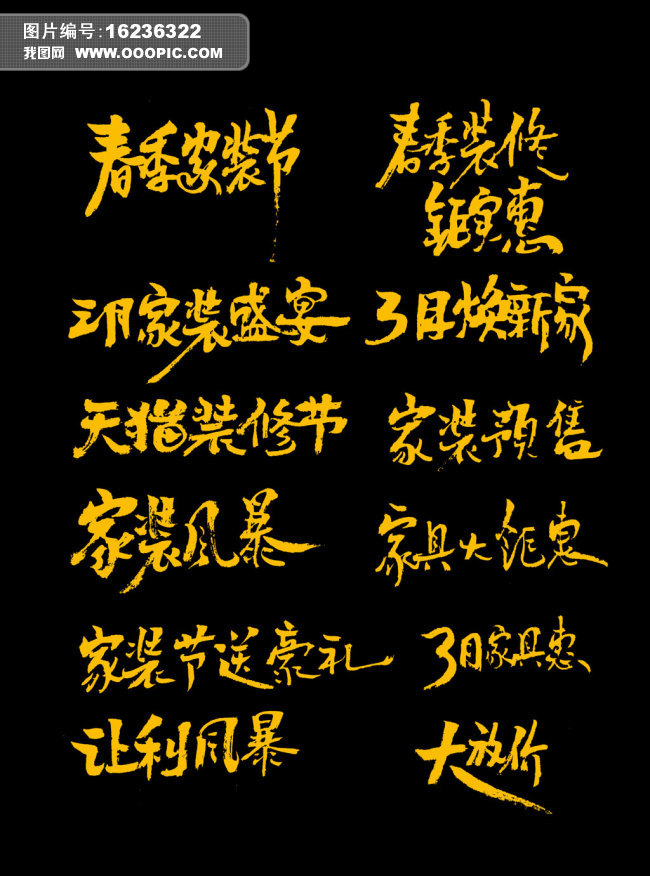 图片编号:16236322
我图网 WWW.OOOPIC.COM
春季家装节
春季装修
钜实惠
三月家装盛宴
3月焕新家
天猫装修节
家装预售
家装风暴
家具大钜惠
家装节送豪礼
3月家具惠
让利风暴
大放价